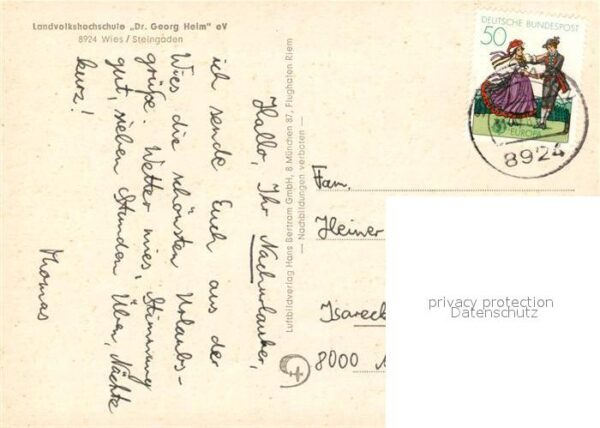 Landvolkshochschule „Dr. Georg Heim" eV
8924 Wies / Steingaden
Hallo, Ihr Nachurlauber,
ich sende Euch aus der
Wies die schönsten Urlaubs-
grüße. Wetter mies, Stimmung
gut, sieben Stunden Üben, Nächte
kurz!
Thomas
Luftbildverlag Hans Bertram GmbH, 8 München 87, Flughafen Riem
— Nachbildungen verboten —
DEUTSCHE BUNDESPOST
50
EUROPA
8924
Fam.
Heiner
Isareck
8000
privacy protection
Datenschutz